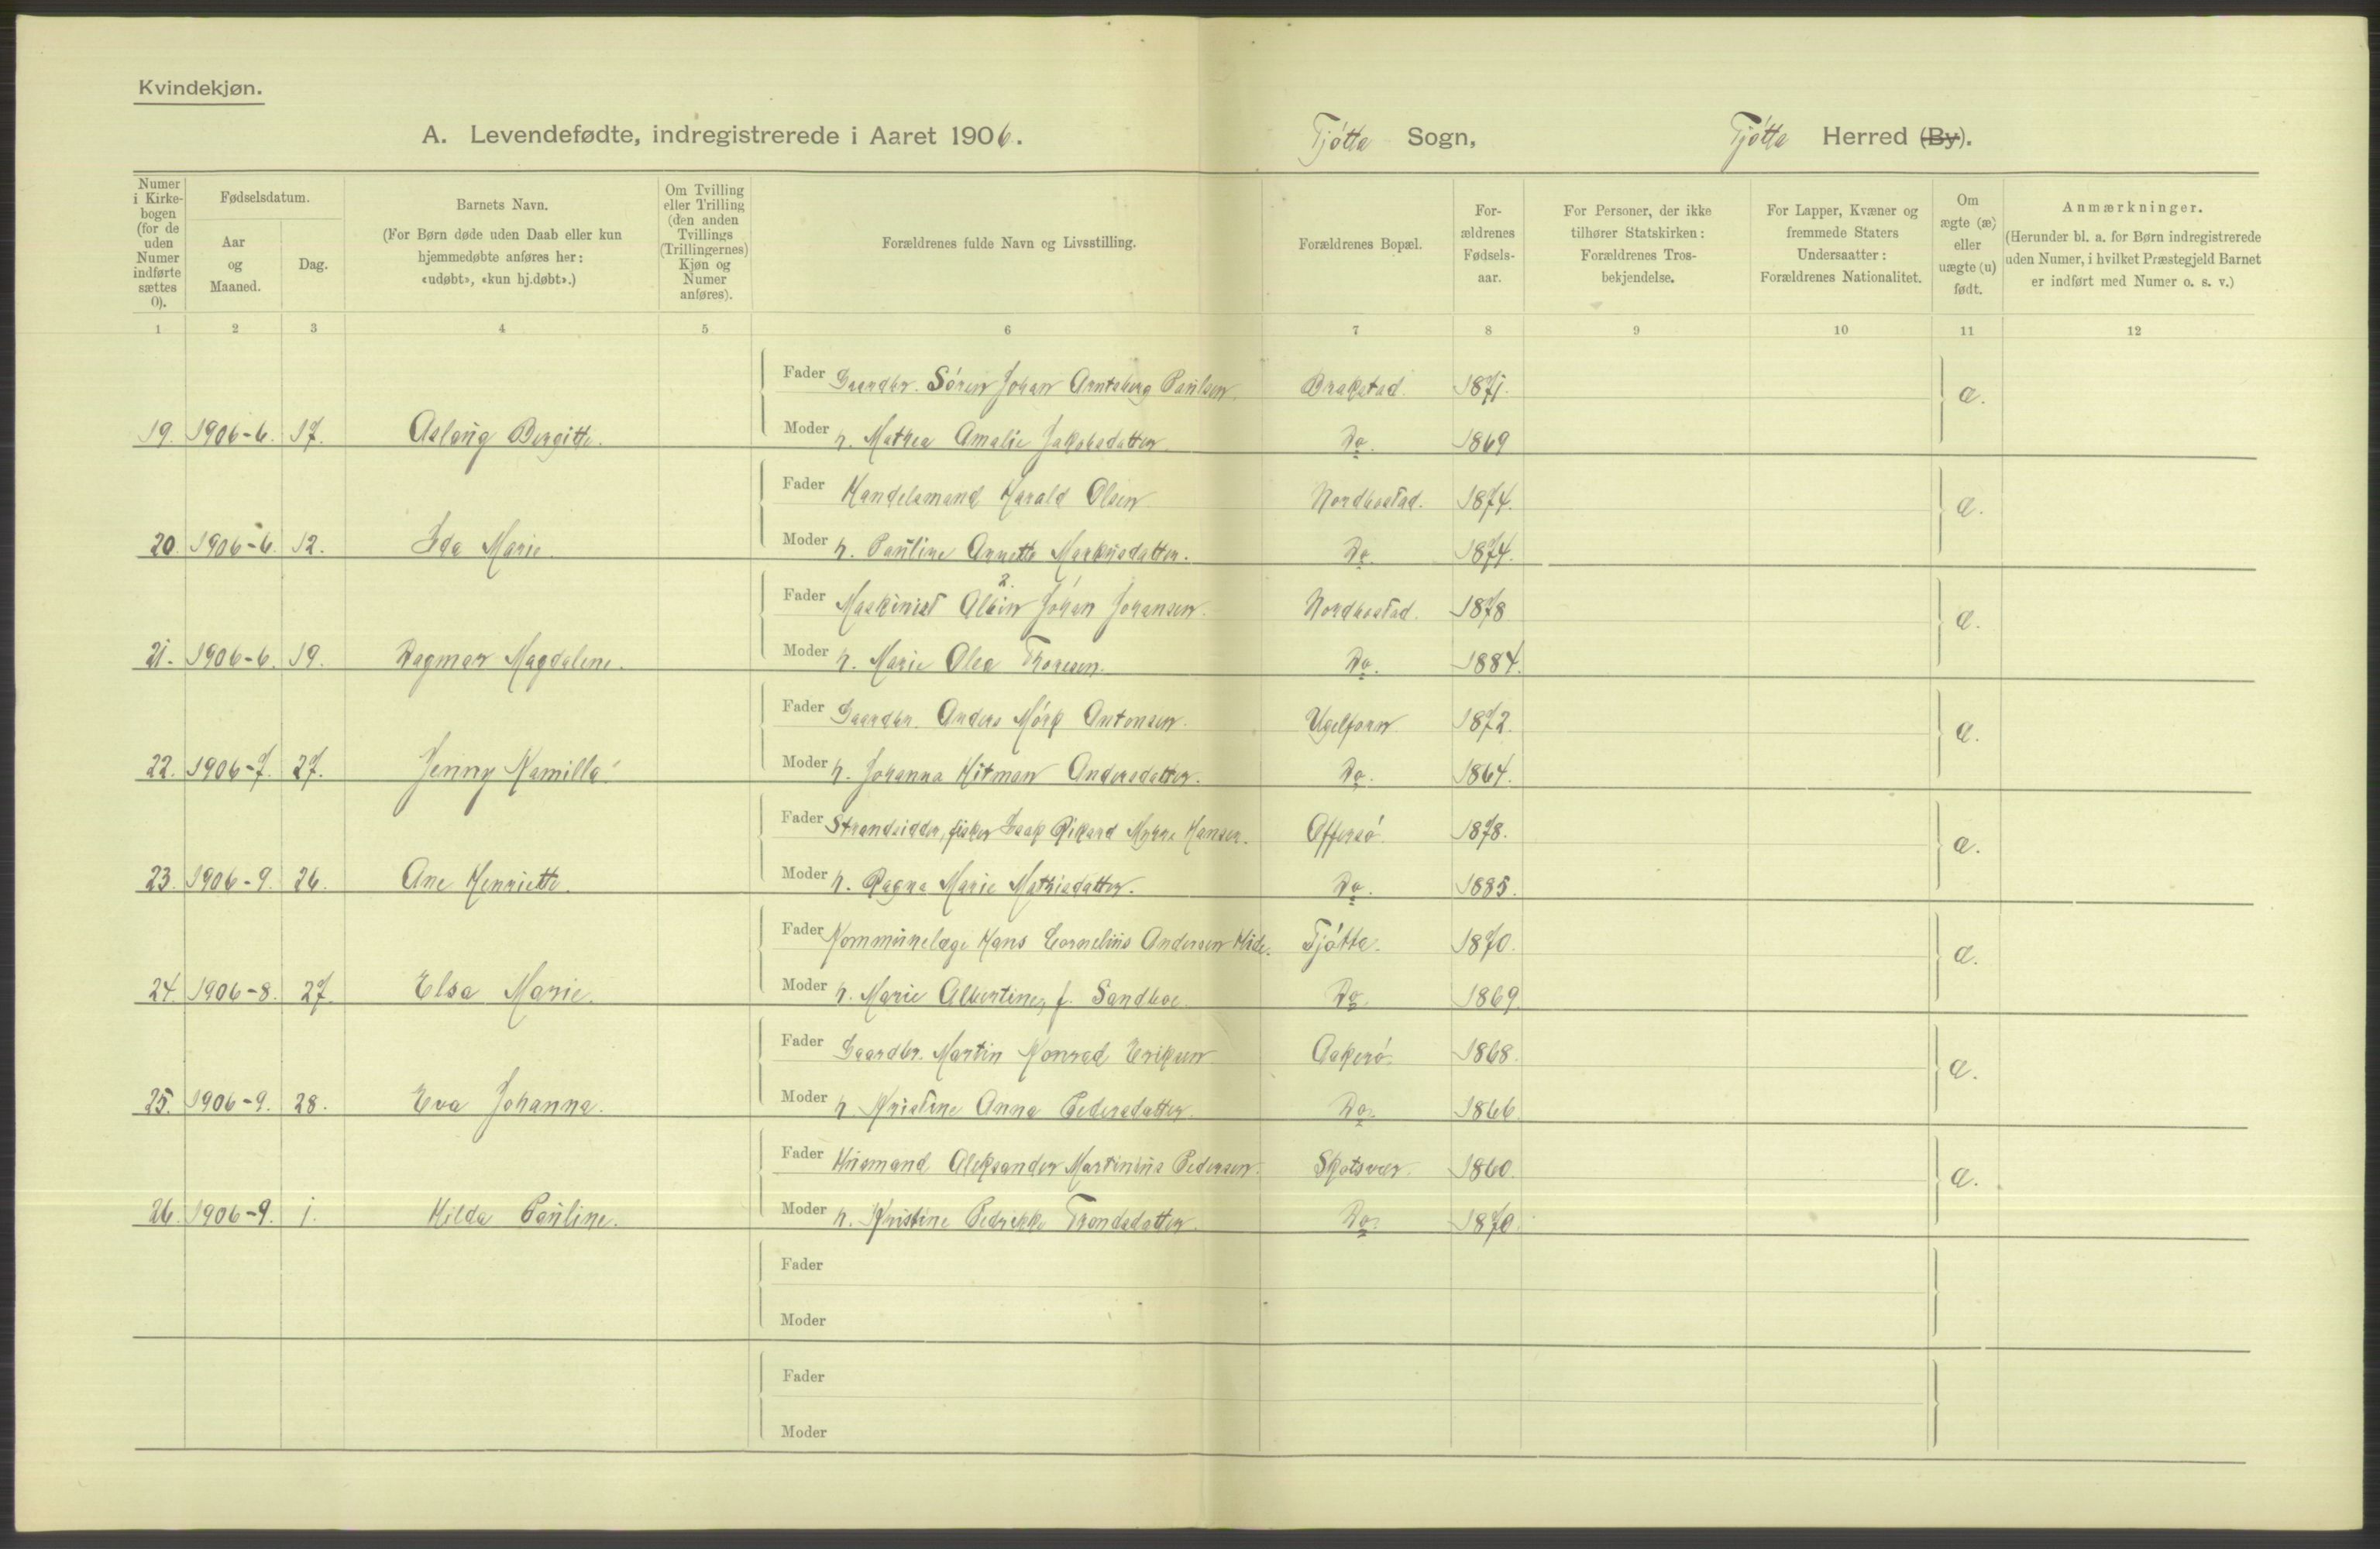 Kvindekjøn.
A. Levendefødte, indregistrerede i Aaret 1906. Tjötta Sogn, Tjötta Herred (By).
Numer i Kirkebogen (for de uden Numer indførte sættes 0).
Fødselsdatum.
Aar og Maaned.
Dag.
Barnets Navn.
(For Børn døde uden Daab eller kun hjemmedøbte anføres her: «udøbt», «kun hj.døbt».)
Om Tvilling eller Trilling (den anden Tvillings (Trillingernes) Kjøn og Numer anføres).
Forældrenes fulde Navn og Livsstilling.
Forældrenes Bopæl.
Forældrenes Fødselsaar.
For Personer, der ikke tilhører Statskirken: Forældrenes Trosbekjendelse.
For Lapper, Kvæner og fremmede Staters Undersaatter: Forældrenes Nationalitet.
Om ægte (æ) eller uægte (u) født.
Anmærkninger.
(Herunder bl. a. for Børn indregistrerede uden Numer, i hvilket Præstegjeld Barnet er indført med Numer o. s. v.)
1 2 3 4 5 6 7 8 9 10 11 12
Fader Gaardbr. Sören Johan Arntsberg Paulsen. Brakstad. 1871. æ.
19. 1906-6. 17. Aslaug Bergitte. Moder h. Mathea Amalie Jakobsdatter. Do. 1869
Fader Handelsmand Harald Olsen Nordbostad. 1874. æ.
20. 1906-6. 12. Ida Marie. Moder h. Pauline Annette Markusdatter. Do. 1874.
Fader Maskinist Albin Johan Johansen. Nordbostad. 1878 æ.
21. 1906-6. 19. Dagmar Magdalene. Moder h. Marie Olea Thoresen. Do. 1884.
Fader Gaardbr. Anders Mörk Antonsen. 1872. æ.
22. 1906-7. 27. Jenny Kamilla. Moder h. Johanna Hitman Andersdatter. Do. 1864.
Fader Strandsidder, fisker Isak Rikard Myhre Hansen. Offersö. 1878. æ.
23. 1906-9. 26. Ane Henriette. Moder h. Ragna Marie Mathisdatter. Do. 1885.
Fader Kommunelæge Hans Cornelius Andersen Hide. Tjötta. 1870. æ.
24. 1906-8. 27. Elsa Marie. Moder h. Marie Albertine, f. Sandboe. Do. 1869.
Fader Gaardbr. Martin Konrad Eriksen Aakerö. 1868. æ.
25. 1906-9. 28. Eva Johanna. Moder h. Kristine Anna Pedersdatter. Do. 1866.
Fader Husmand Aleksander Martinius Pedersen. Skotsvær. 1860. æ.
26. 1906-9. 1. Hilda Pauline. Moder h. Kristine Pedrikke Trondsdatter. Do. 1870.
Fader
Moder
Fader
Moder